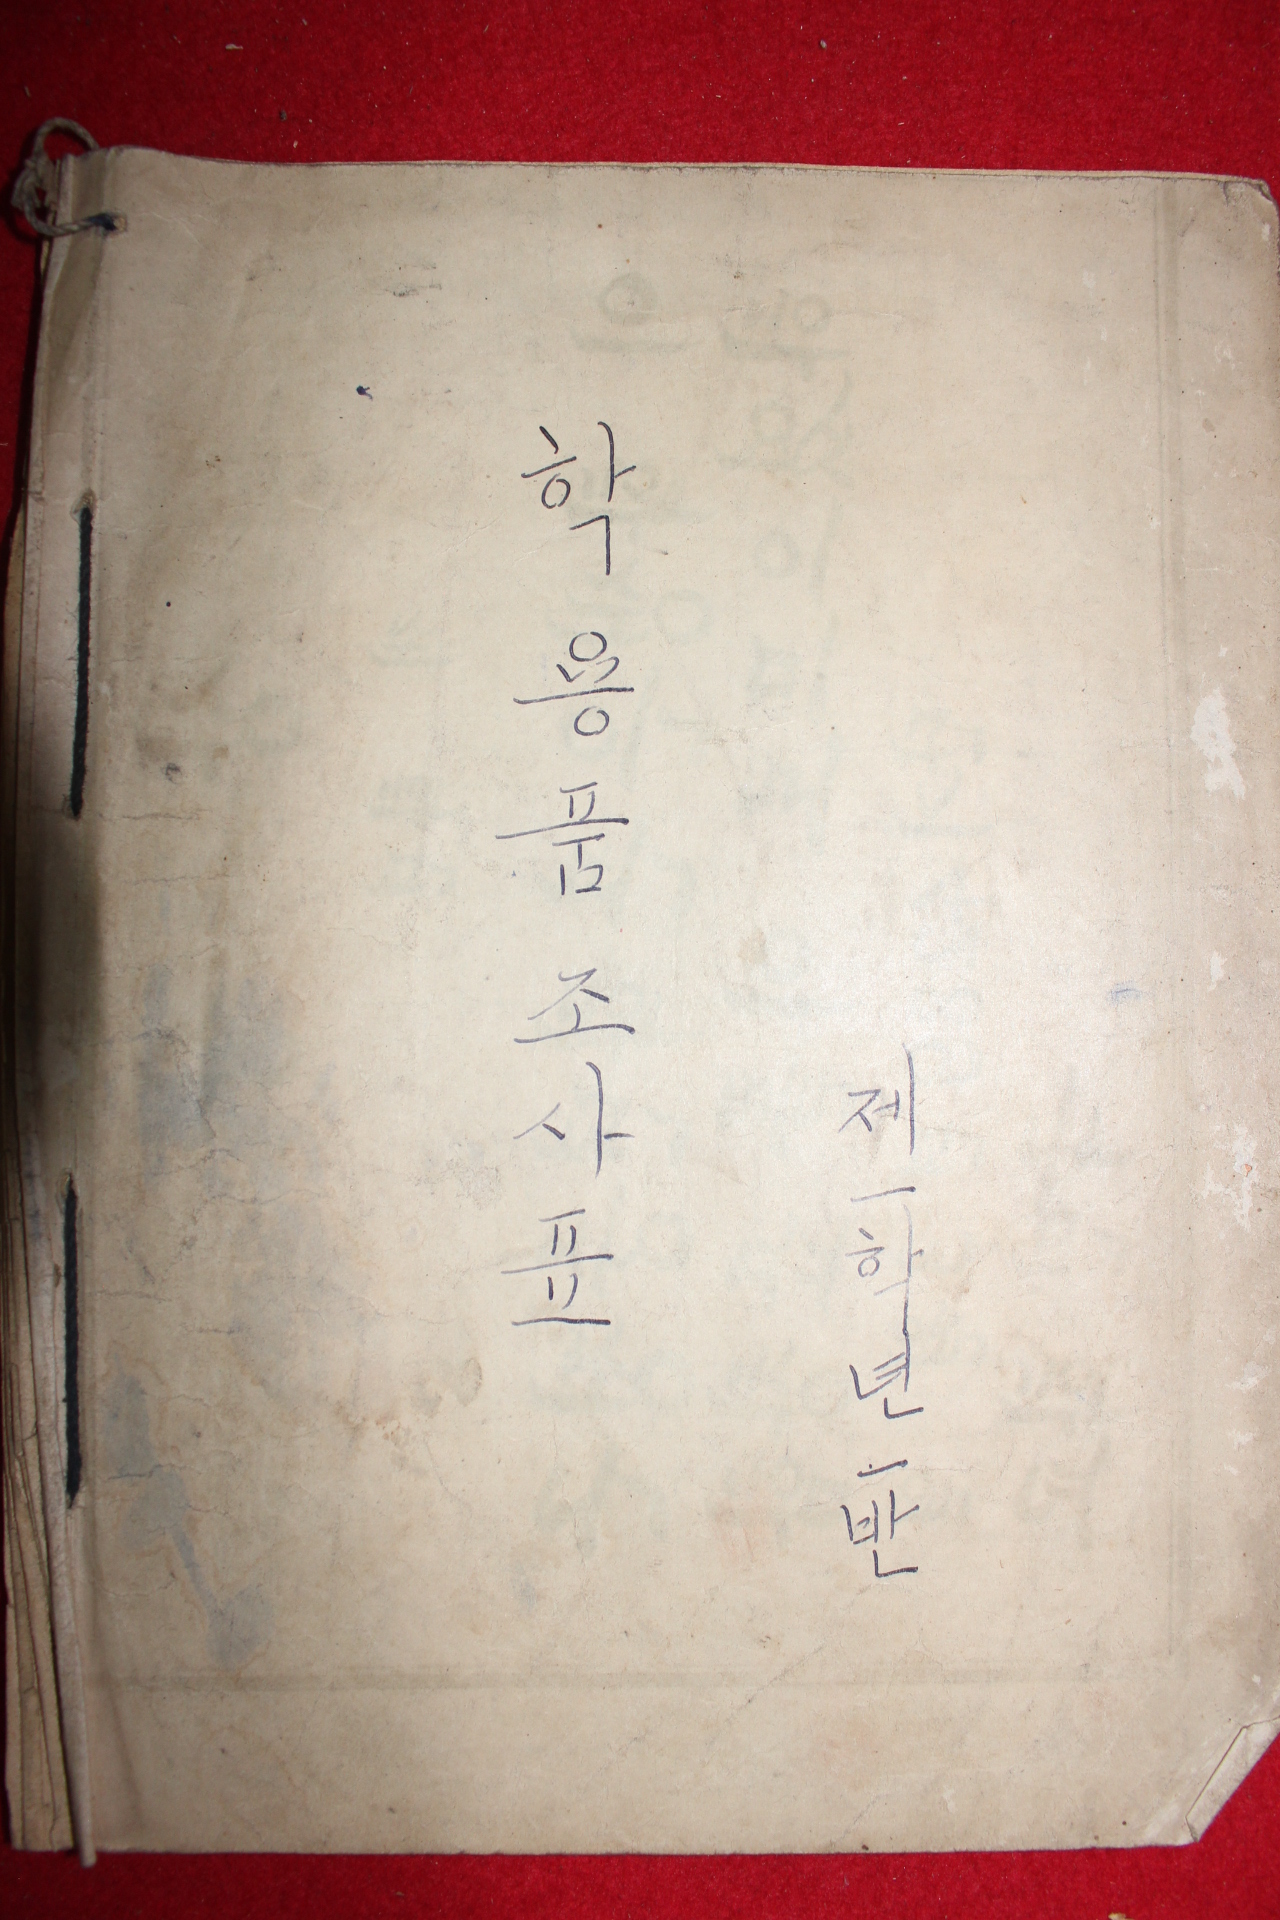 제一학년一반
학용품조사표